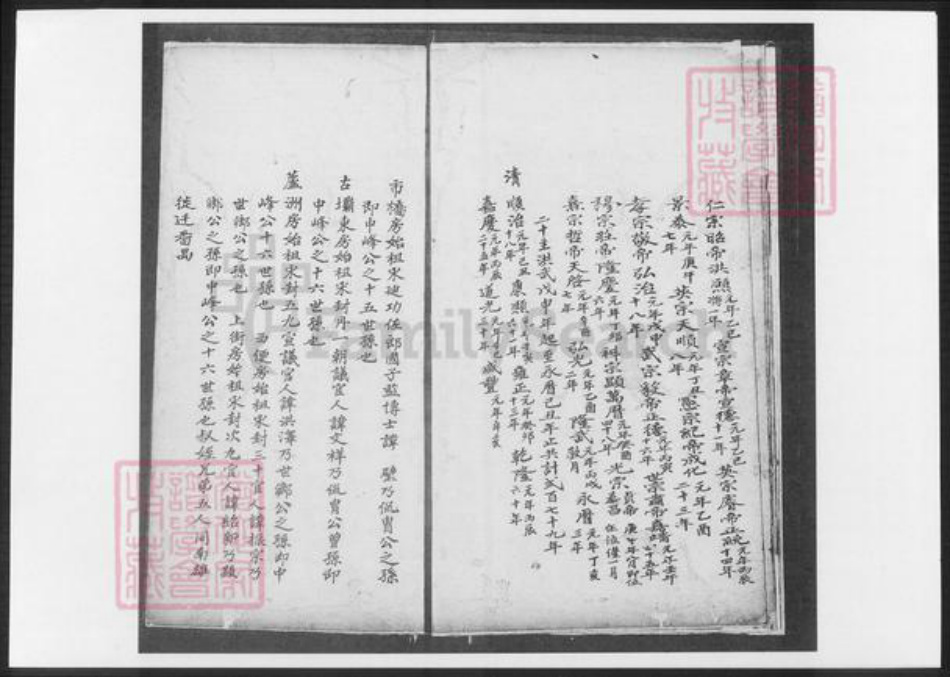 仁宗昭帝洪熙元年乙巳将一年 宣宗章帝宣德元年乙巳十一年 英宗睿帝正統元年丙辰十四年
景泰元年庚午七年 英宗天順元年丁丑八年 憲宗紀帝成化元年乙酉二十三年
孝宗敬帝弘治元年戊申十八年 武宗毅帝正德元年丙寅十六年 世宗肅帝嘉靖元年壬午四十五年
穆宗莊帝隆慶元年六年 神宗顯萬曆元年癸酉四十八年 光宗泰昌在位僅一月
熹宗哲帝天啓元年辛酉七年 弘光元年乙酉二年 隆武元年丙戌數月 永曆元年丁亥三年
二十主洪武戊申年起至永曆己丑年正共計弍百七十九年
清 順治元年十八年 康熙六十一年 雍正元年癸卯十三年 乾隆元年丙辰六十年
嘉慶元年丙辰二十五年 道光元年辛巳 咸豐元年辛亥
市橋房始祖宋建功佐郎國子監博士諱 璧乃侃胄公之孫
即申峰公之十五世孫也
古壩東房始祖宋封丹一朝議官人諱文祥乃侃胄公曾孫即
申峰公之十六世孫也
蘆洲房始祖宋封五九宣議官人諱洪澤乃世卿公之孫即申
峰公十六世孫也 西便房始祖宋封三十官人諱振宗乃
世卿公之孫也 上街房始祖宋封次九宣人諱紹鄭乃顯
卿公之孫即申峰公之十六世孫也叔姪兄弟五人同南雄
徙迁番禺
FamilySearch